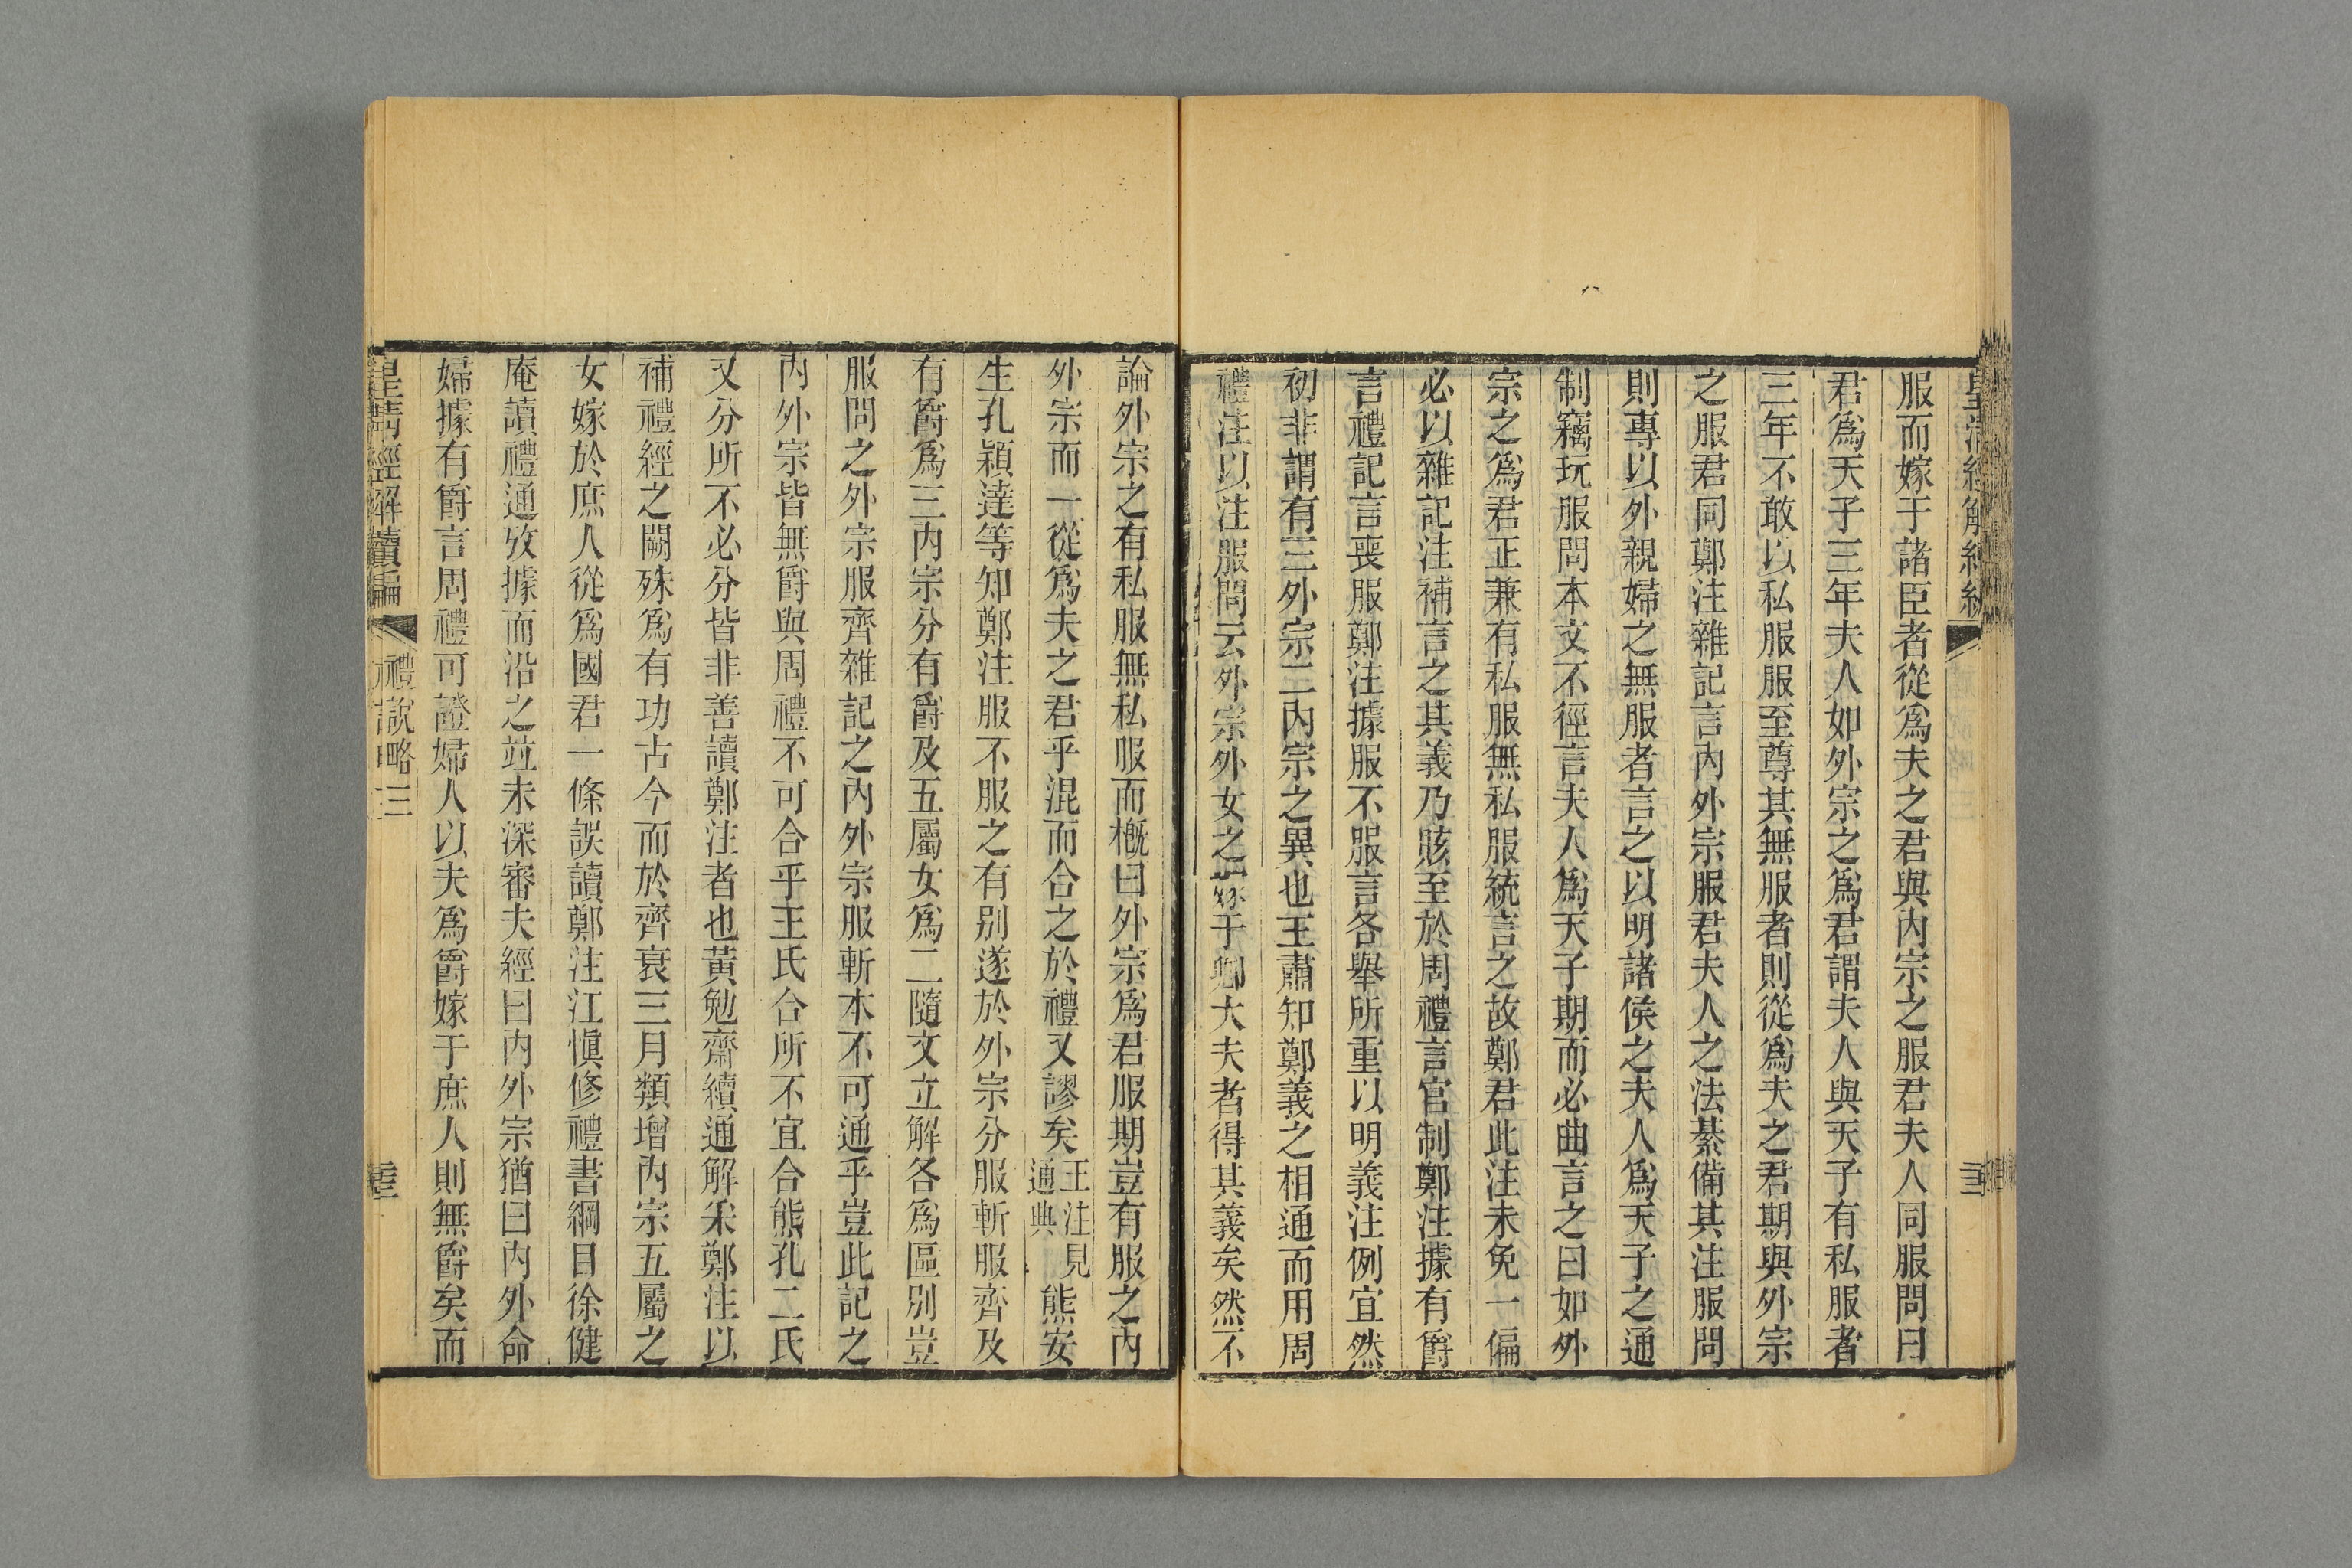 服而嫁于諸臣者從爲夫之君與內宗之服君夫人同服問曰
君爲天子三年夫人如外宗之爲君謂夫人與天子有私服者
三年不敢以私服服至尊其無服者則從爲夫之君期與外宗
之服君同鄭注雜記言內外宗服君夫人之法綦備其注服問
則專以外親婦之無服者言之以明諸侯之夫人爲天子之通
制竊玩服問本文不徑言夫人爲天子期而必曲言之曰如外
宗之爲君正兼有私服無私服統言之故鄭君此注未免一偏
必以雜記注補言之其義乃賅至於周禮言官制鄭注據有爵
言禮記言喪服鄭注據服不服言各舉所重以明義注例宜然
初非謂有三外宗二內宗之異也王肅知鄭義之相通而用周
禮注以注服問云外宗外女之嫁于卿大夫者得其義矣然不
論外宗之有私服無私服而槪曰外宗爲君服期豈有服之內
外宗而一從爲夫之君乎混而合之於禮又謬矣王注見通典熊安
生孔穎達等知鄭注服不服之有別遂於外宗分服斬服齊及
有爵爲三內宗分有爵及五屬女爲二隨文立解各爲區別豈
服問之外宗服齊雜記之內外宗服斬本不可通乎豈此記之
內外宗皆無爵與周禮不可合乎王氏合所不宜合熊孔二氏
又分所不必分皆非善讀鄭注者也黃勉齋續通解采鄭注以
補禮經之闕殊爲有功古今而於齊衰三月類增內宗五屬之
女嫁於庶人從爲國君一條誤讀鄭注江愼修禮書綱目徐健
庵讀禮通攷據而沿之竝未深審夫經曰內外宗猶曰內外命
婦據有爵言周禮可證婦人以夫爲爵嫁于庶人則無爵矣而
皇淸經解續編
禮說略三